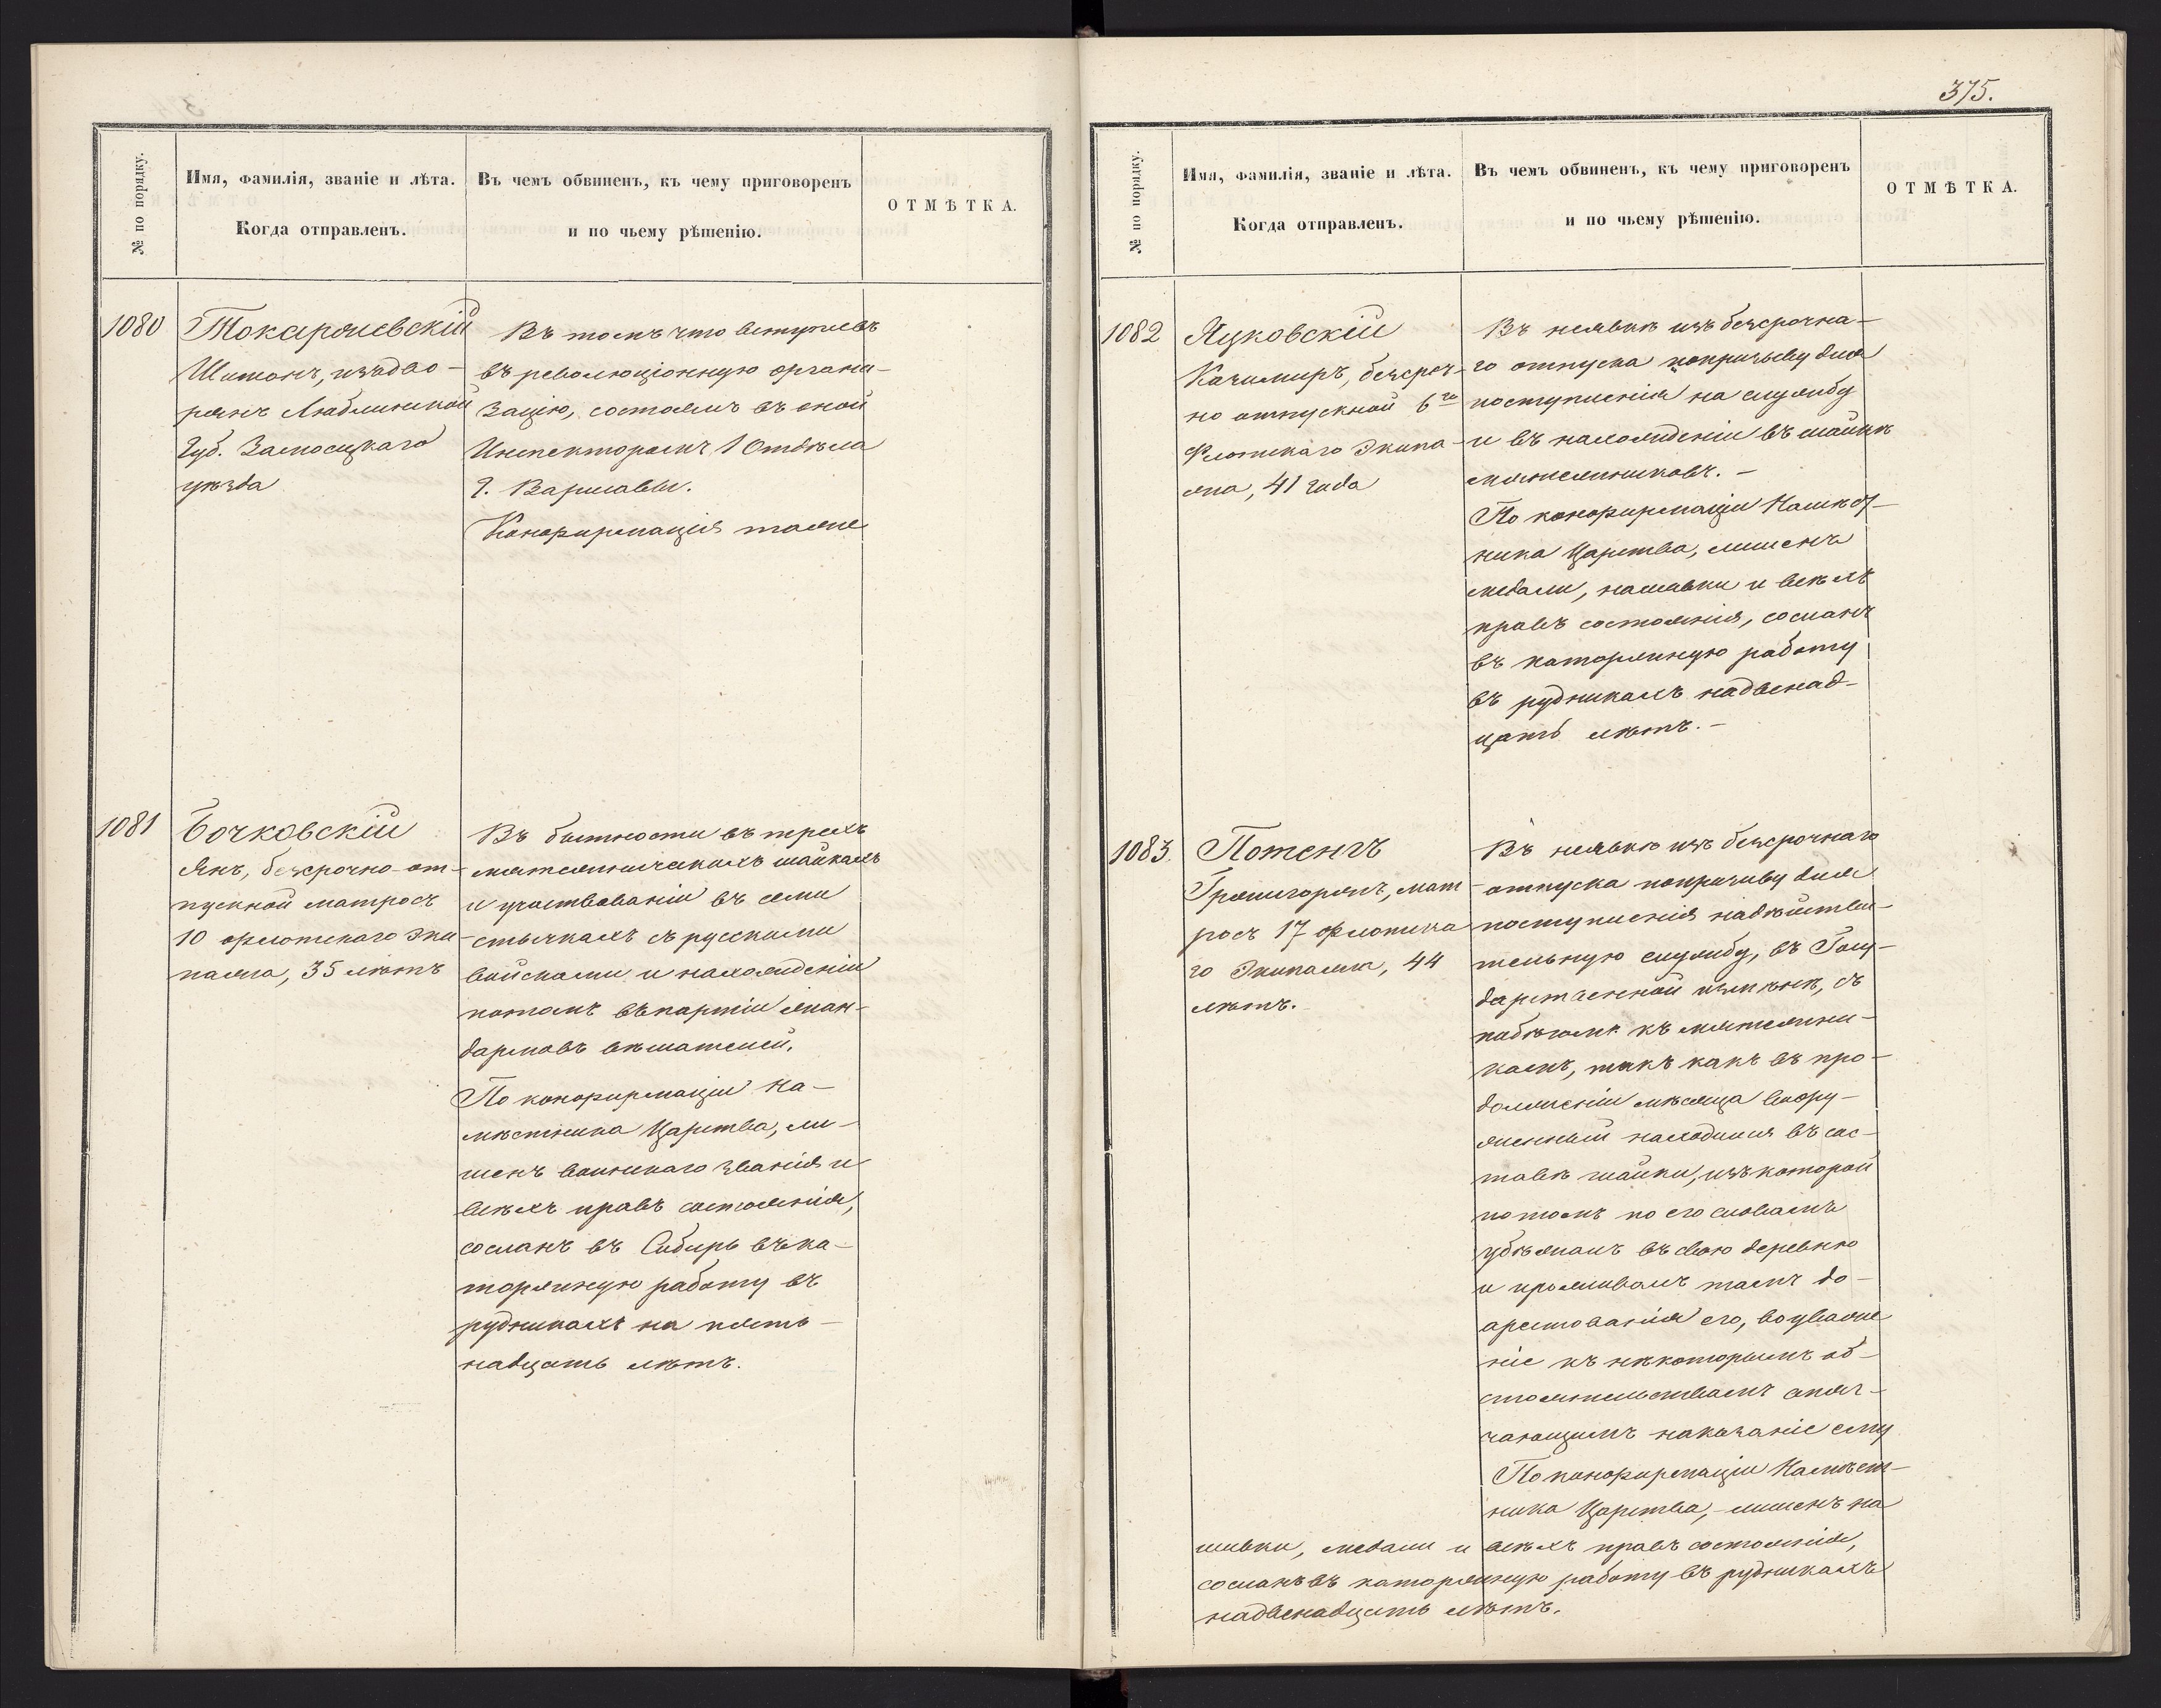 375.
№ по порядку.
Имя, фамилія, званіе и лѣта.
Когда отправленъ.
Въ чемъ обвиненъ, къ чему приговоренъ
и по чьему рѣшенію.
ОТМѢТКА.
1080
Токаржевскій
Шимонъ, изъ дво-
рянъ Люблинской
Губ. Замосцкаго
уѣзда
Въ томъ что вступивъ
въ революціонную органи-
зацію, состоялъ въ оной
Инспекторомъ 1 Отдѣла
г. Варшавы.
Конфирмація таже
1081
Бочковскій
Янъ, безсрочно-от-
пускной матросъ
10 флотскаго Эки-
пажа, 35 лѣтъ
Въ бытности въ трехъ
мятежническихъ шайкахъ
и участвованіи въ семи
стычкахъ съ русскими
войсками и нахожденіи
потомъ въ партіи жан-
дармовъ вѣшателей.
По конфирмаціи На-
мѣстника Царства, ли-
шенъ воинскаго званія и
всѣхъ правъ состоянія,
сосланъ въ Сибирь въ ка-
торжную работу въ
рудникахъ на пять-
надцать лѣтъ.
№ по порядку.
Имя, фамилія, званіе и лѣта.
Когда отправленъ.
Въ чемъ обвиненъ, къ чему приговоренъ
и по чьему рѣшенію.
ОТМѢТКА.
1082
Яцковскій
Казимиръ, безсроч-
но отпускной 6го
Флотскаго Экипа-
жа, 41 года
Въ неявкѣ изъ безсрочна-
го отпуска по призыву для
поступленія на службу
и въ нахожденіи въ шайкѣ
мятежниковъ. -
По конфирмаціи Намѣст-
ника Царства, лишенъ
медали, нашивки и всѣхъ
правъ состоянія, сосланъ
въ каторжную работу
въ рудникахъ на двенад-
цать лѣтъ. -
1083.
Потенгъ
мат-
росъ 17 Флотска-
го Экипажа, 44
лѣтъ.
Въ неявкѣ изъ безсрочнаго
отпуска по призыву для
поступленія на дѣйстви-
тельную службу, въ Госу-
дарственной измѣнѣ, съ
побѣгомъ къ мятежни-
камъ, такъ какъ въ про-
долженіи мѣсяца воору-
женный находился въ сос-
тавѣ шайки, изъ которой
потомъ по его словамъ
убѣжалъ въ свою деревню
и проживалъ тамъ до
арестованія его, во уваже
ніе къ нѣкоторымъ об-
стоятельствамъ смяг-
чающимъ наказаніе ему
По конфирмаціи Намѣст-
ника Царства, - лишенъ на
шивки, медали и всѣхъ правъ состоянія,
сосланъ въ каторжную работу въ рудникахъ
на двенадцать лѣтъ.